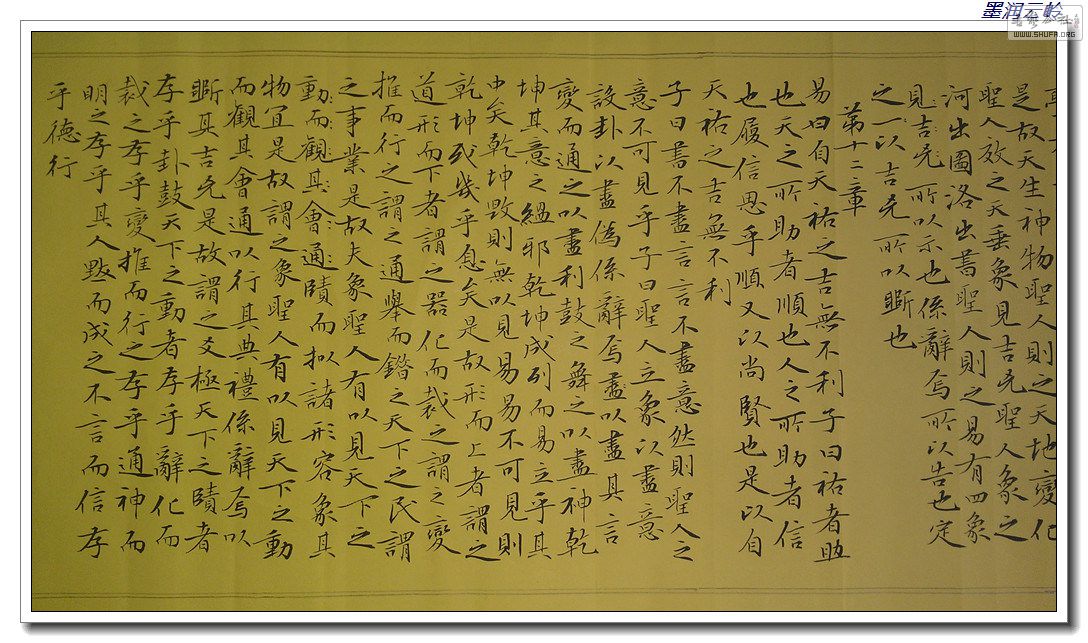 墨润云岭
WWW.SHUFA.ORG
是故天生神物聖人則之天地變化
聖人效之天垂象見吉凶聖人象之
河出圖洛出書聖人則之易有四象
見吉凶所以示也係辭焉所以告也定
之一以吉凶所以斷也
第十二章
易曰自天祐之吉無不利子曰祐者助
也天之所助者順也人之所助者信
也履信思乎順又以尚賢也是以自
天祐之吉無不利
子曰書不盡言言不盡意然則聖人之
意不可見乎子曰聖人立象以盡意
設卦以盡偽係辭焉盡以盡其言
變而通之以盡利鼓之舞之以盡神乾
坤其意之縕邪乾坤成列而易立乎其
中矣乾坤毀則無以見易易不可見則
乾坤或幾乎息矣是故形而上者謂之
道形而下者謂之器化而裁之謂之變
推而行之謂之通舉而錯之天下之民謂
之事業是故夫象聖人有以見天下之
動而觀其會通賾而拟諸形容象其
物宜是故謂之象聖人有以見天下之動
而觀其會通以行其典禮係辭焉以
斷其吉凶是故謂之爻極天下之賾者
存乎卦鼓天下之動者存乎辭化而
裁之存乎變推而行之存乎通神而
明之存乎其人默而成之不言而信存
乎德行